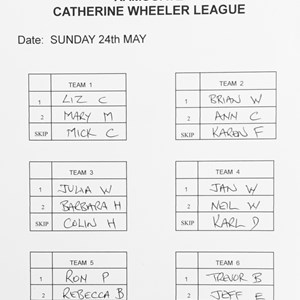 CATHERINE WHEELER LEAGUE
Date: SUNDAY 24th MAY
TEAM 1
1 LIZ C
2 MARY M
SKIP MICK C
TEAM 2
1 BRIAN W
2 ANN C
SKIP KAREN F
TEAM 3
1 JULIA W
2 BARBARA H
SKIP COLIN H
TEAM 4
1 JAN W
2 NEIL W
SKIP KARL D
TEAM 5
1 RON P
2 REBECCA B
TEAM 6
1 TREVOR B
2 JEFF E